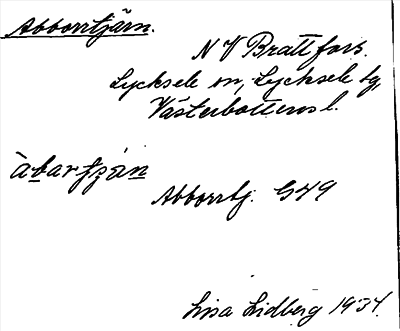 Abborrtjärn.
N V Brattfors.
Lycksele sn, Lycksele lg,
Västerbottens l.
àbartjän
Abborrtj. G49
Lisa Lidberg 1934.